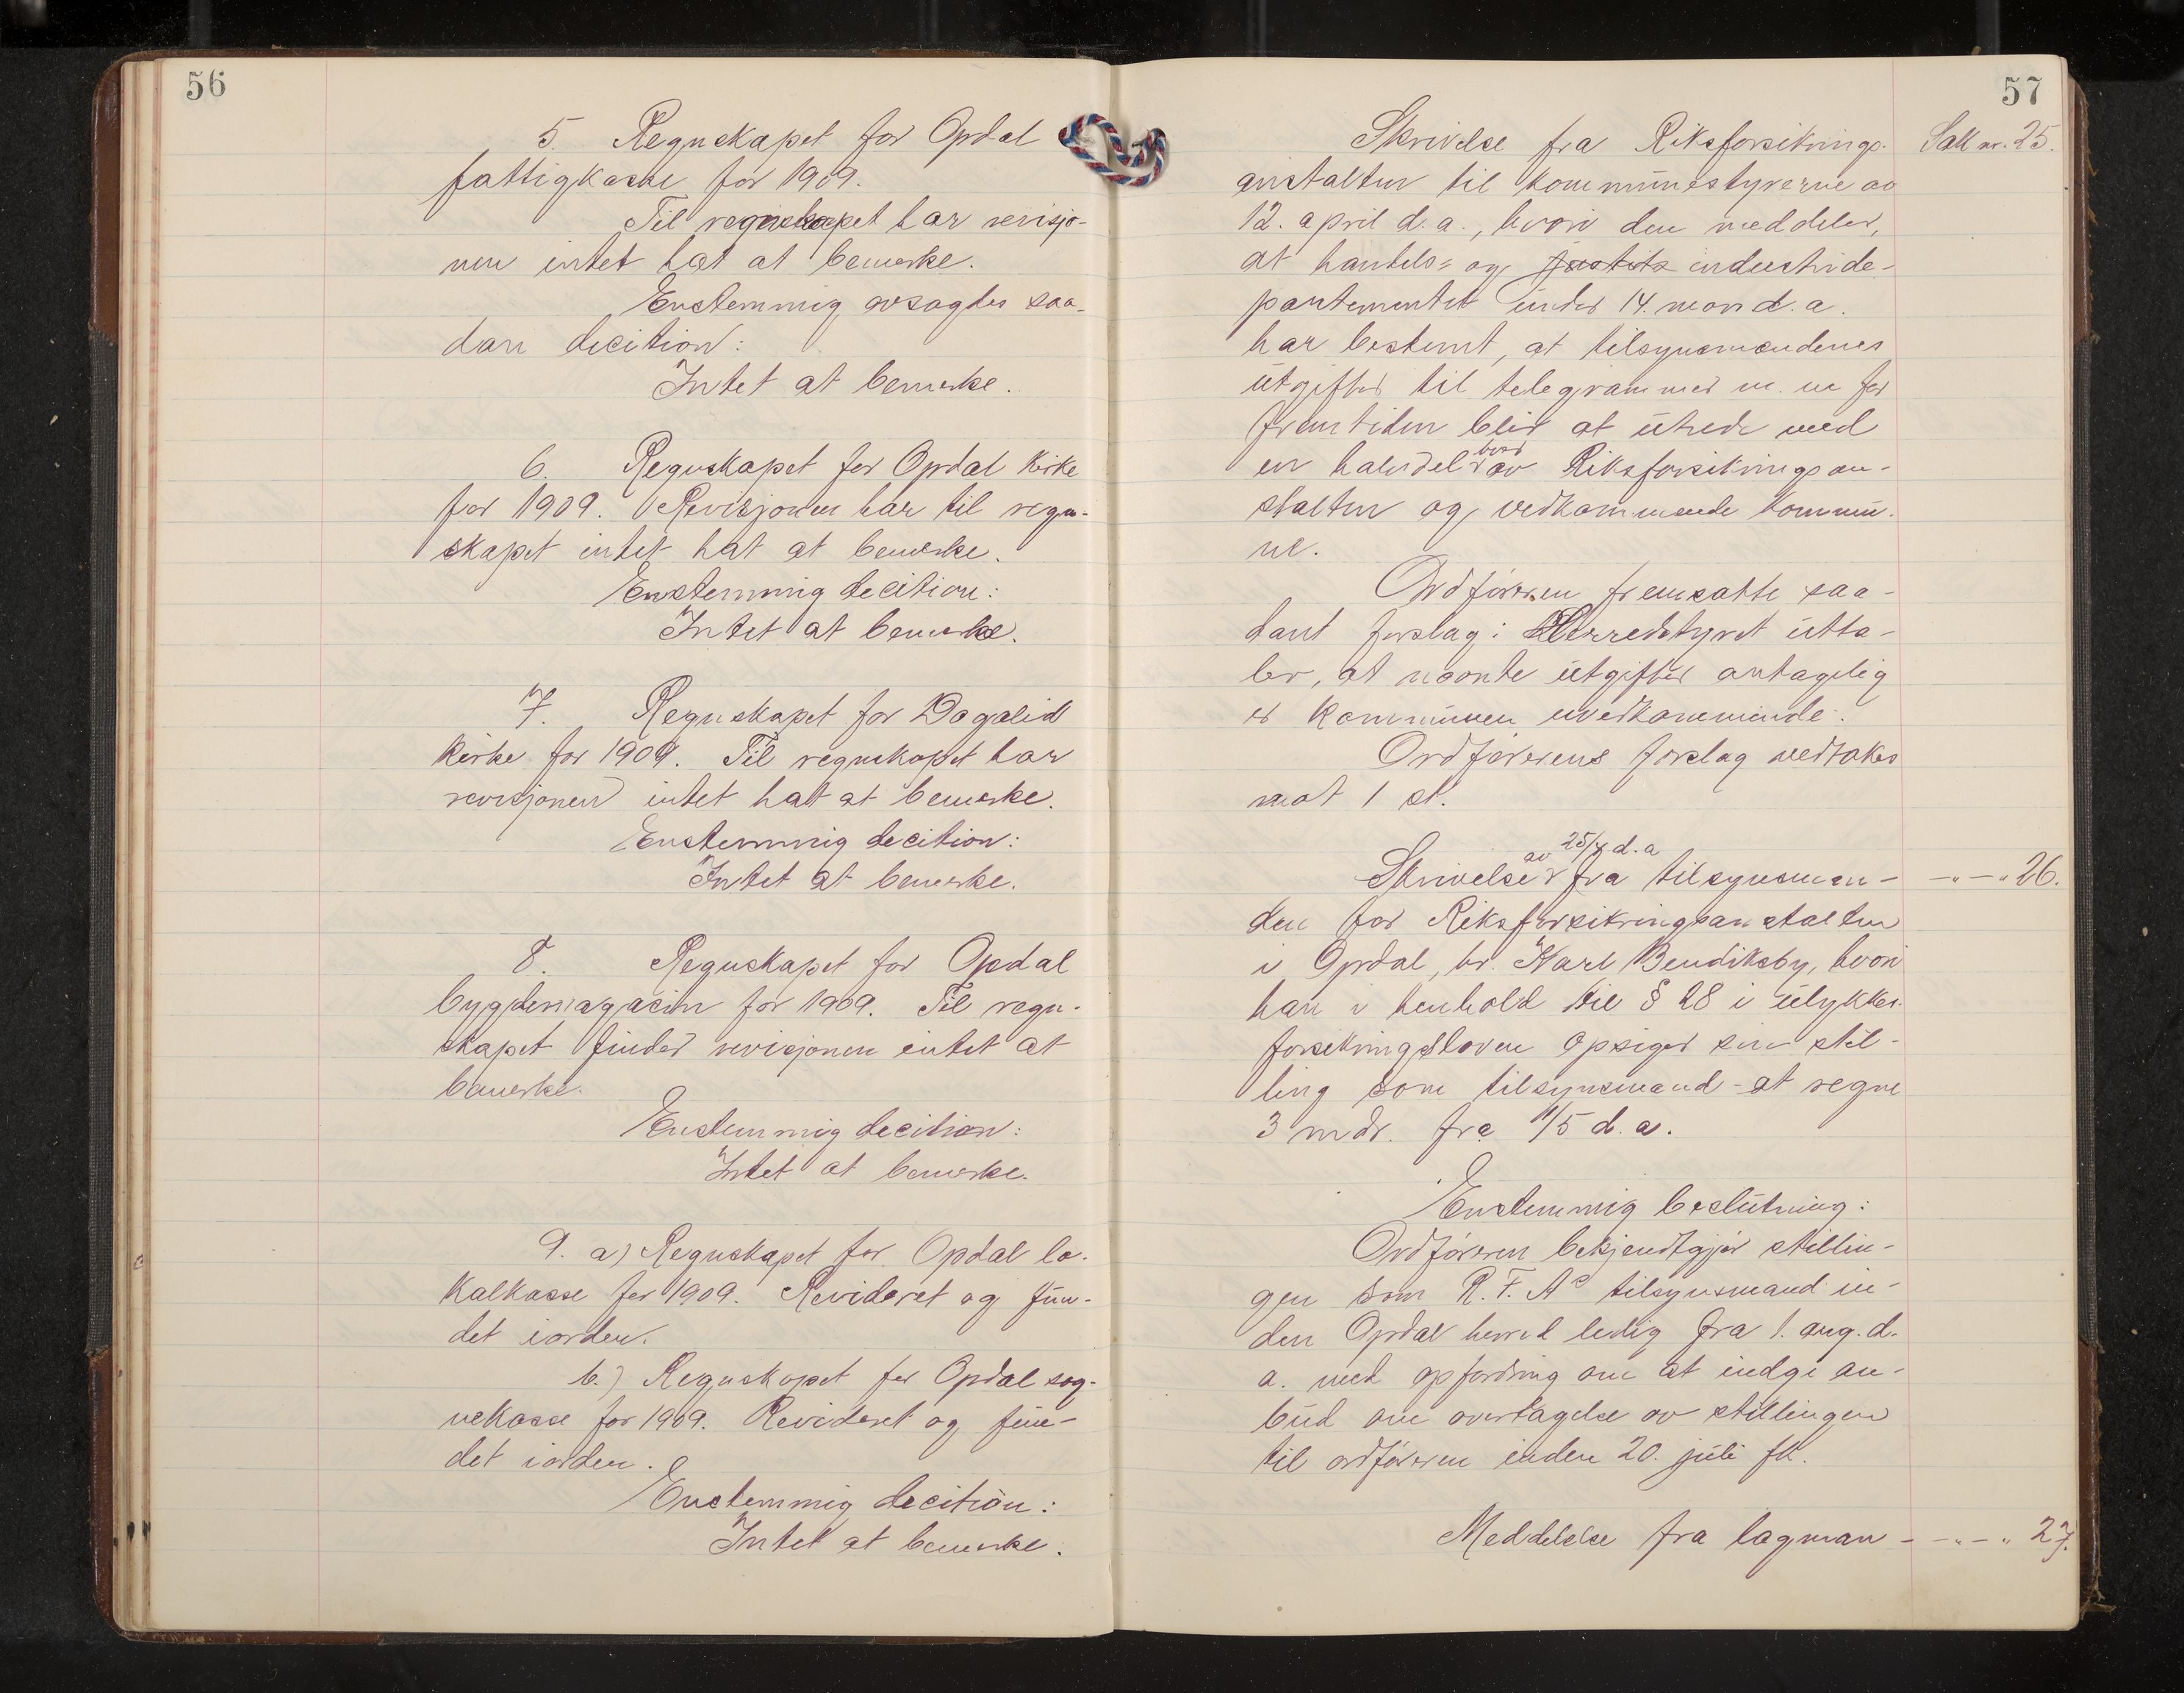 56
5. Regnskapet for Opdal
fattigkasse for 1909.
Til regnskapet har revisjo-
nen intet hat at bemerke.
Enstemmig avsagdes saa-
dan decition:
Intet at bemerke.
6. Regnskapet for Opdal kirke
for 1909. Revisjonen har til regn-
skapet intet hat at bemerke.
Enstemmig decition:
Intet at bemerke.
7. Regnskapet for Dagalid
kirke for 1909. Til regnskapet har
revisjonen intet hat at bemerke.
Enstemmig decition:
Intet at bemerke.
8. Regnskapet for Opdal
bygdemagasin for 1909. Til regn-
skapet finder revisjonen intet at
bemerke.
Enstemmig decition:
Intet at bemerke.
9. a) Regnskapet for Opdal lo-
kalkasse for 1909. Revideret og fun-
det iorden.
b.) Regnskapet for Opdal sog-
nekasse for 1909. Revideret og fun-
det iorden.
Enstemmig decition:
Intet at bemerke.
57
Skrivelse fra Riksforsikrings- Sak nr. 25.
anstalten til kommunestyrerne av
12. april d.a., hvori den meddeler,
at handels- og justits industride-
partementet under 14. mars d.a.
har bestemt, at tilsynsmændenes
utgifter til telegrammer m.m. for
fremtiden blir at utrede med
en halvdel hver av Riksforsikringsan-
stalten og vedkommende kommu-
ne.
Ordføreren fremsatte saa-
dant forslag: Herredstyret utta-
ler, at nævnte utgifter antagelig
er kommunen uvedkommende.
Ordførerens forslag vedtakes
mot 1 st.
Skrivelse av 25/4 d.a fra tilsynsman- -"-" 26.
den for Riksforsikringsanstalten
i Opdal, hr. Karl Bendiksby, hvori
han i henhold til § 28 i ulykkes-
forsikringsloven opsiger sin stil-
ling som tilsynsmand - at regne
3 mdr. fra 1/5 d.a.
Enstemmig beslutning:
Ordføreren bekjendtgjør stillin-
gen som R.F.A.s tilsynsmand in-
den Opdal herred ledig fra 1. aug. d.
a. med opfordring om at indgi an-
bud om overtagelse av stillingen
til ordføreren inden 20. juli fk.
Meddelelse fra lagman- -"-" 27.